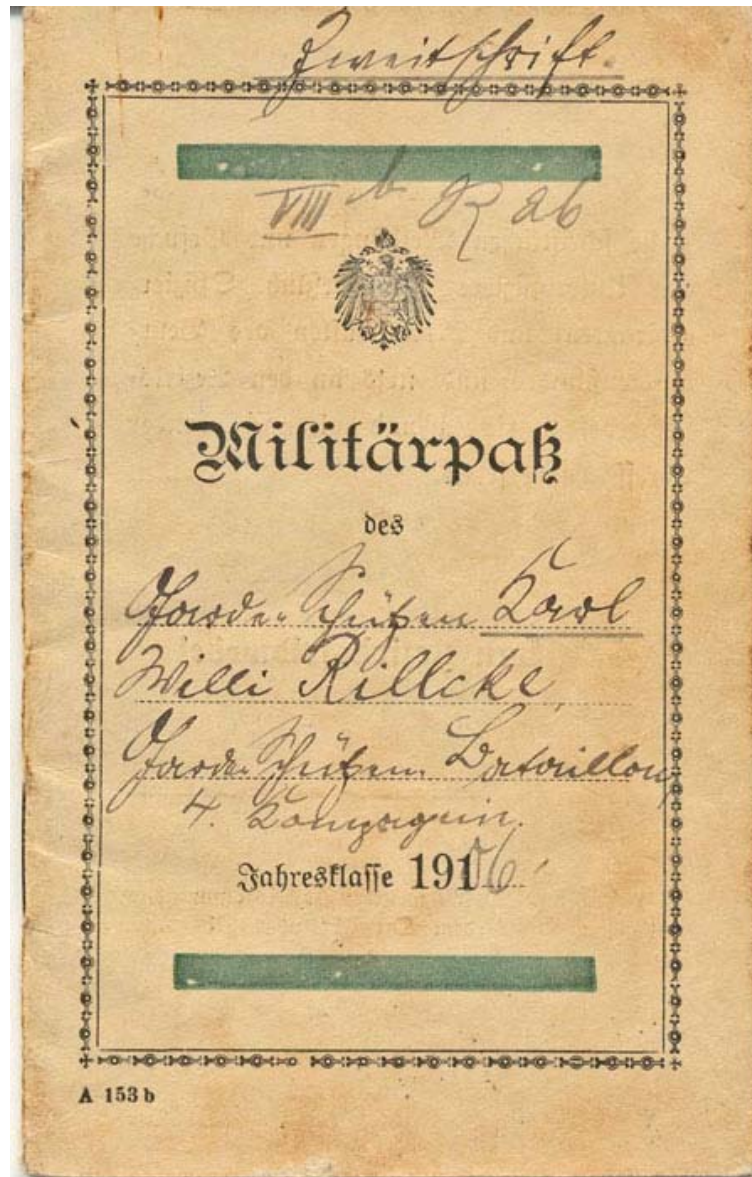 Zweitschrift.
VIII b
Militärpaß
des
Garde-Schützen Karl
Willi Rillcke,
Garde-Schützen-Bataillon,
4. Kompagnie.
Jahresklasse 1906.
A 153 b